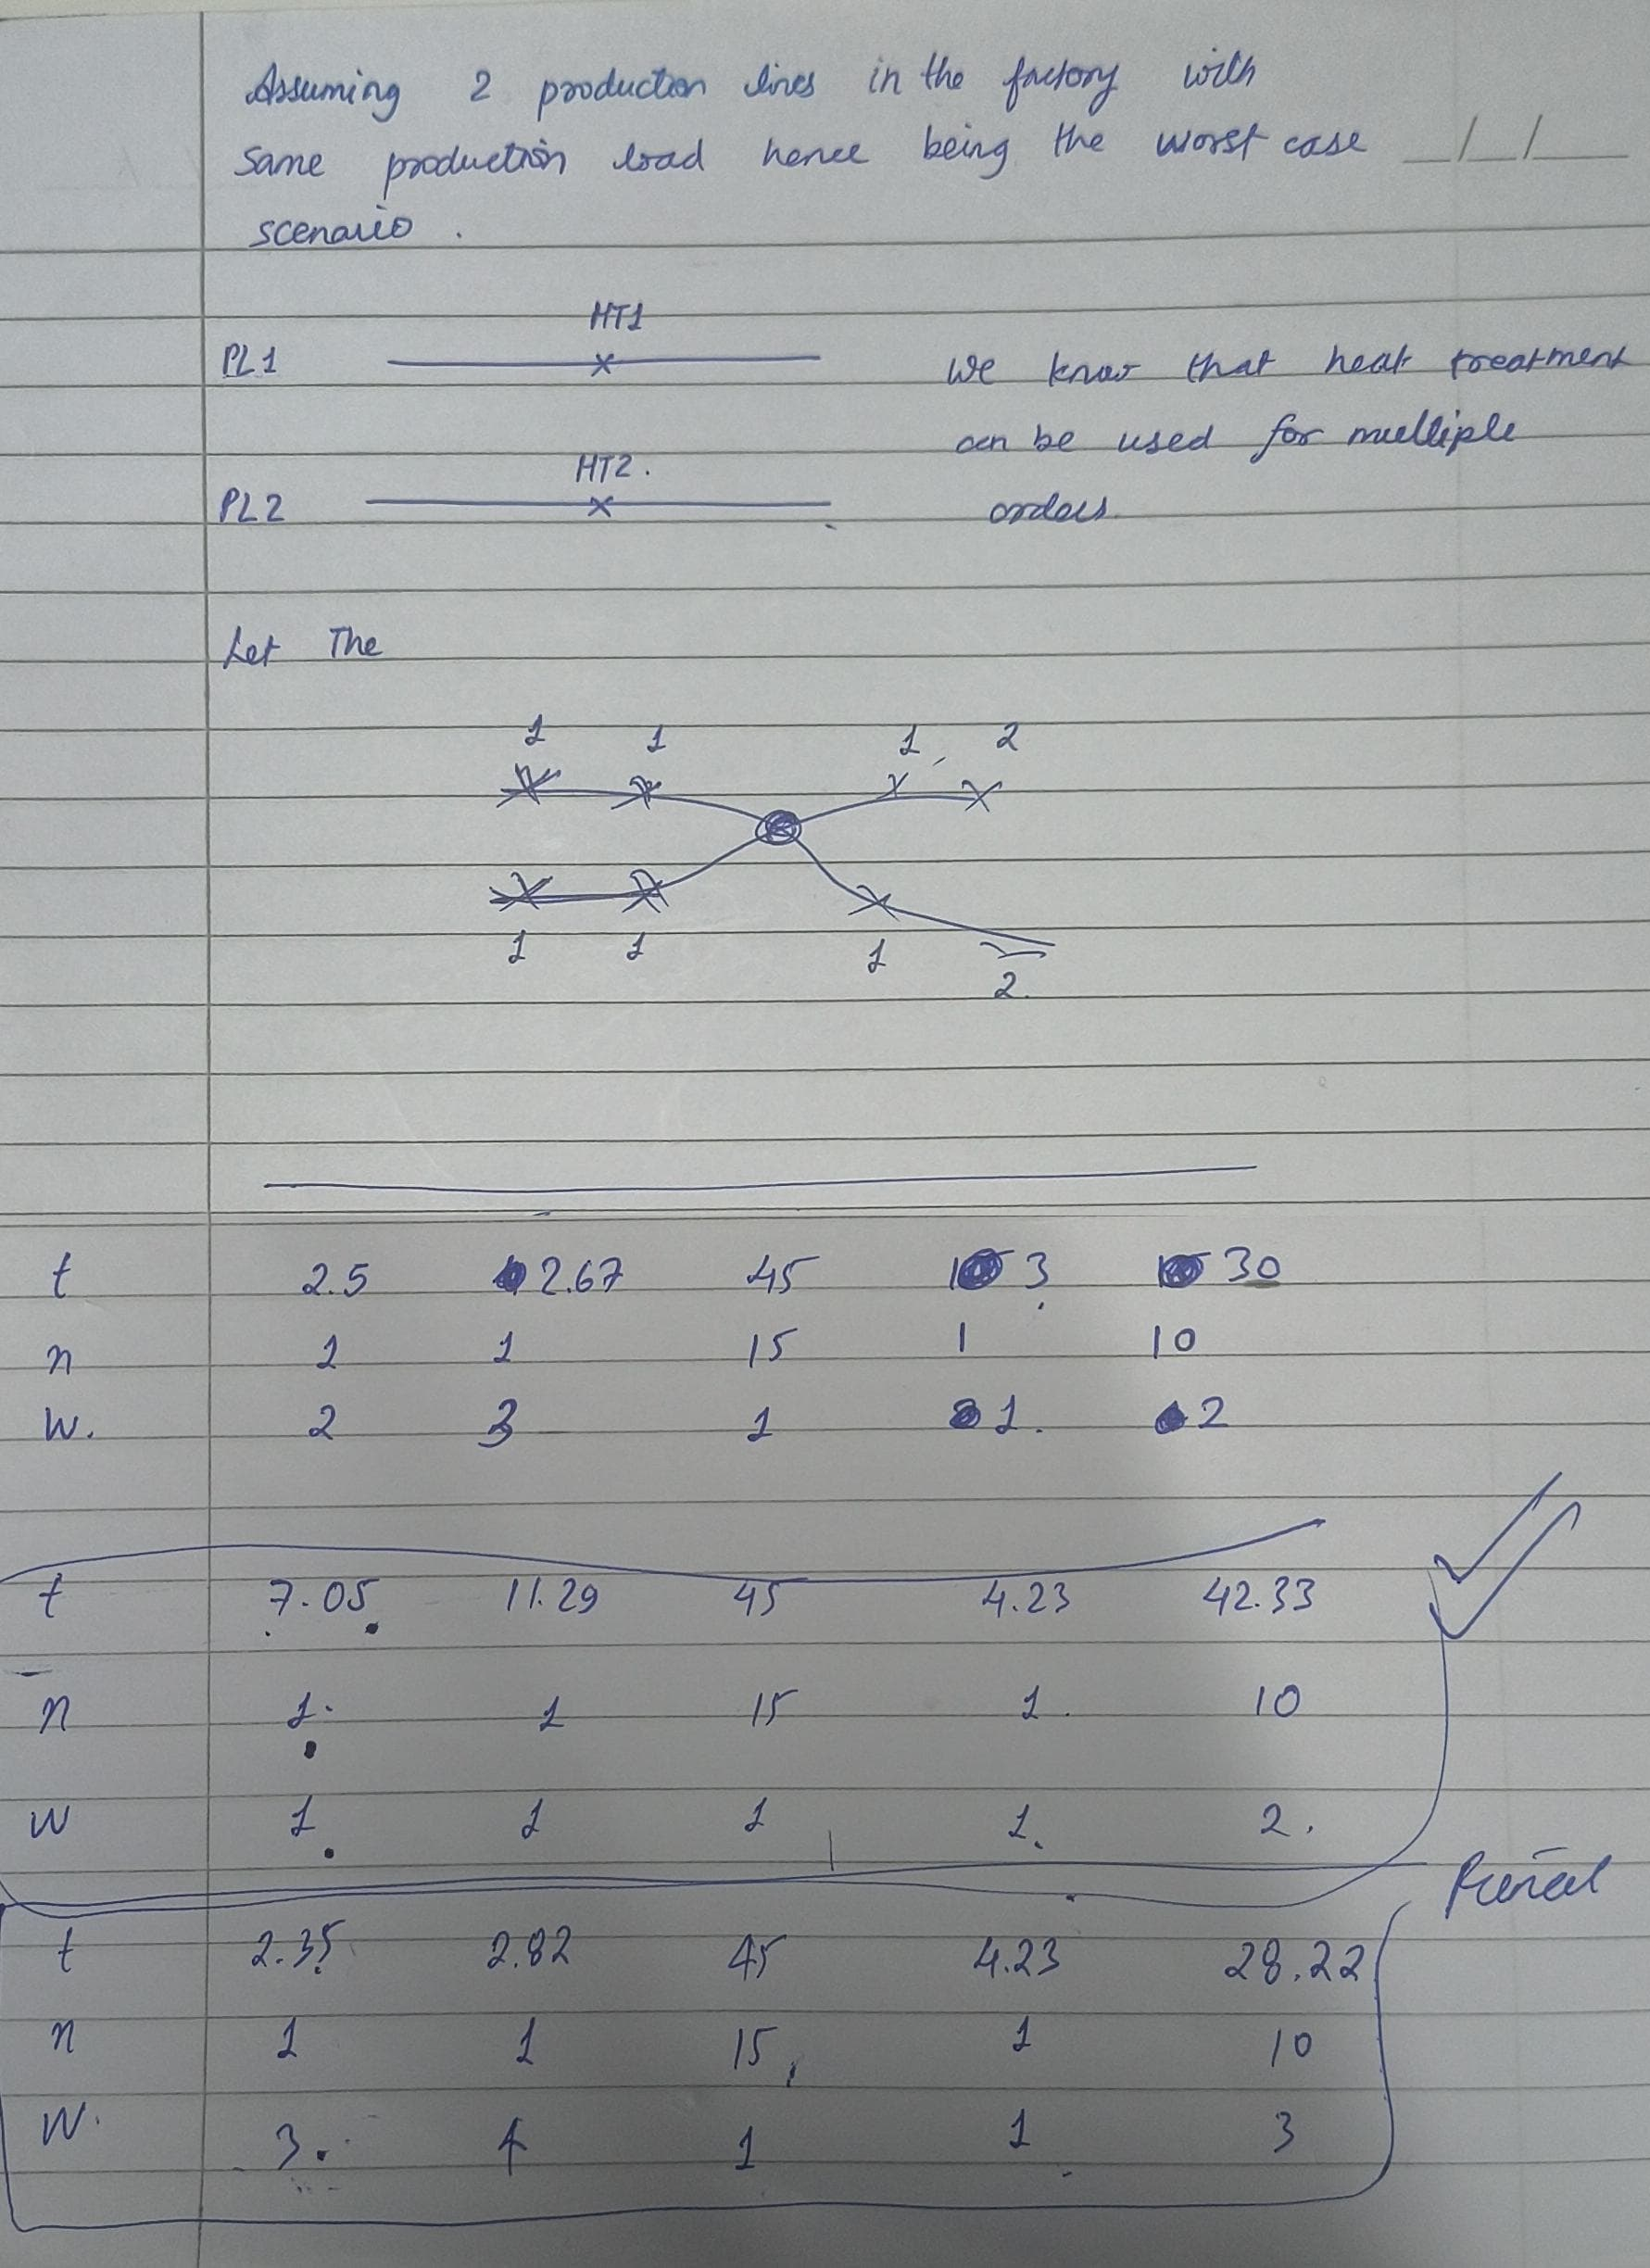 Assuming 2 production lines in the factory with
same production load hence being the worst case __/__/____
scenario.
HT1
PL1
we know that heat treatment
can be used for multiple
HT2.
PL2
orders.
Let The
1 1 1, 2
1 1 1
2.
t 2.5 2.67 45 3 30
n 1 1 15 1 10
W. 2 3 1 1. 2
t 7.05 11.29 45 4.23 42.33
n 1. 1 15 1. 10
W 1. 1 1 1. 2.
t 2.35 2.82 45 4.23 28.22
n 1 1 15 1 10
W. 3. 4 1 1 3